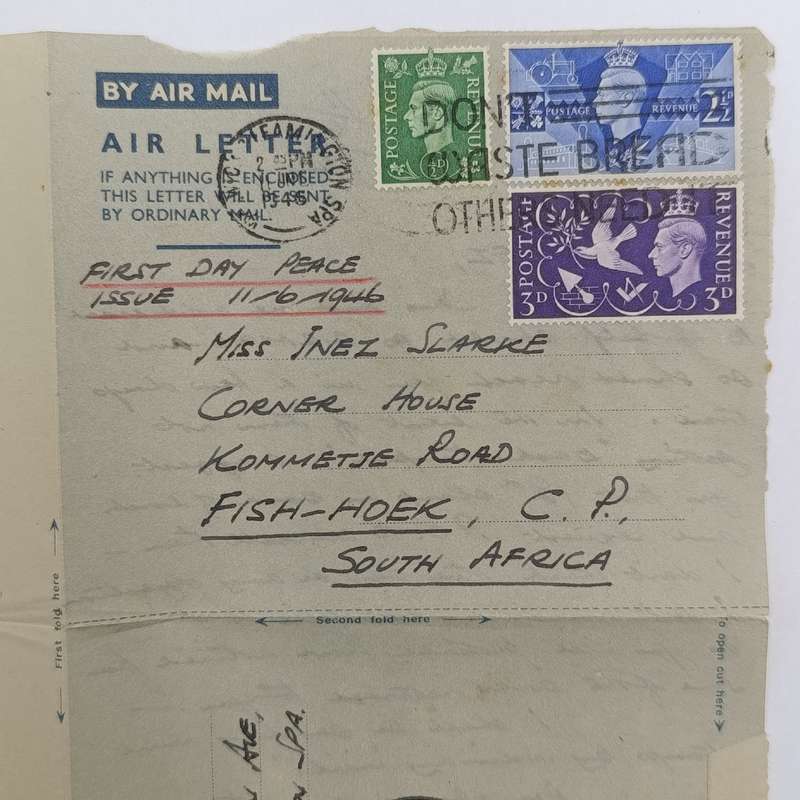 BY AIR MAIL
AIR LETTER
IF ANYTHING IS ENCLOSED
THIS LETTER WILL BE SENT
BY ORDINARY MAIL.
LEAMINGTON SPA
PM
1946
POSTAGE REVENUE
½D
POSTAGE REVENUE 2½D
POSTAGE REVENUE
3D 3D
DON'T
WASTE BREAD
OTHERS NEED IT
FIRST DAY PEACE
ISSUE 11/6/1946
MISS INEZ SLARKE
CORNER HOUSE
KOMMETJE ROAD
FISH-HOEK, C. P.,
SOUTH AFRICA
First fold here
Second fold here
To open cut here
AVE,
SPA.